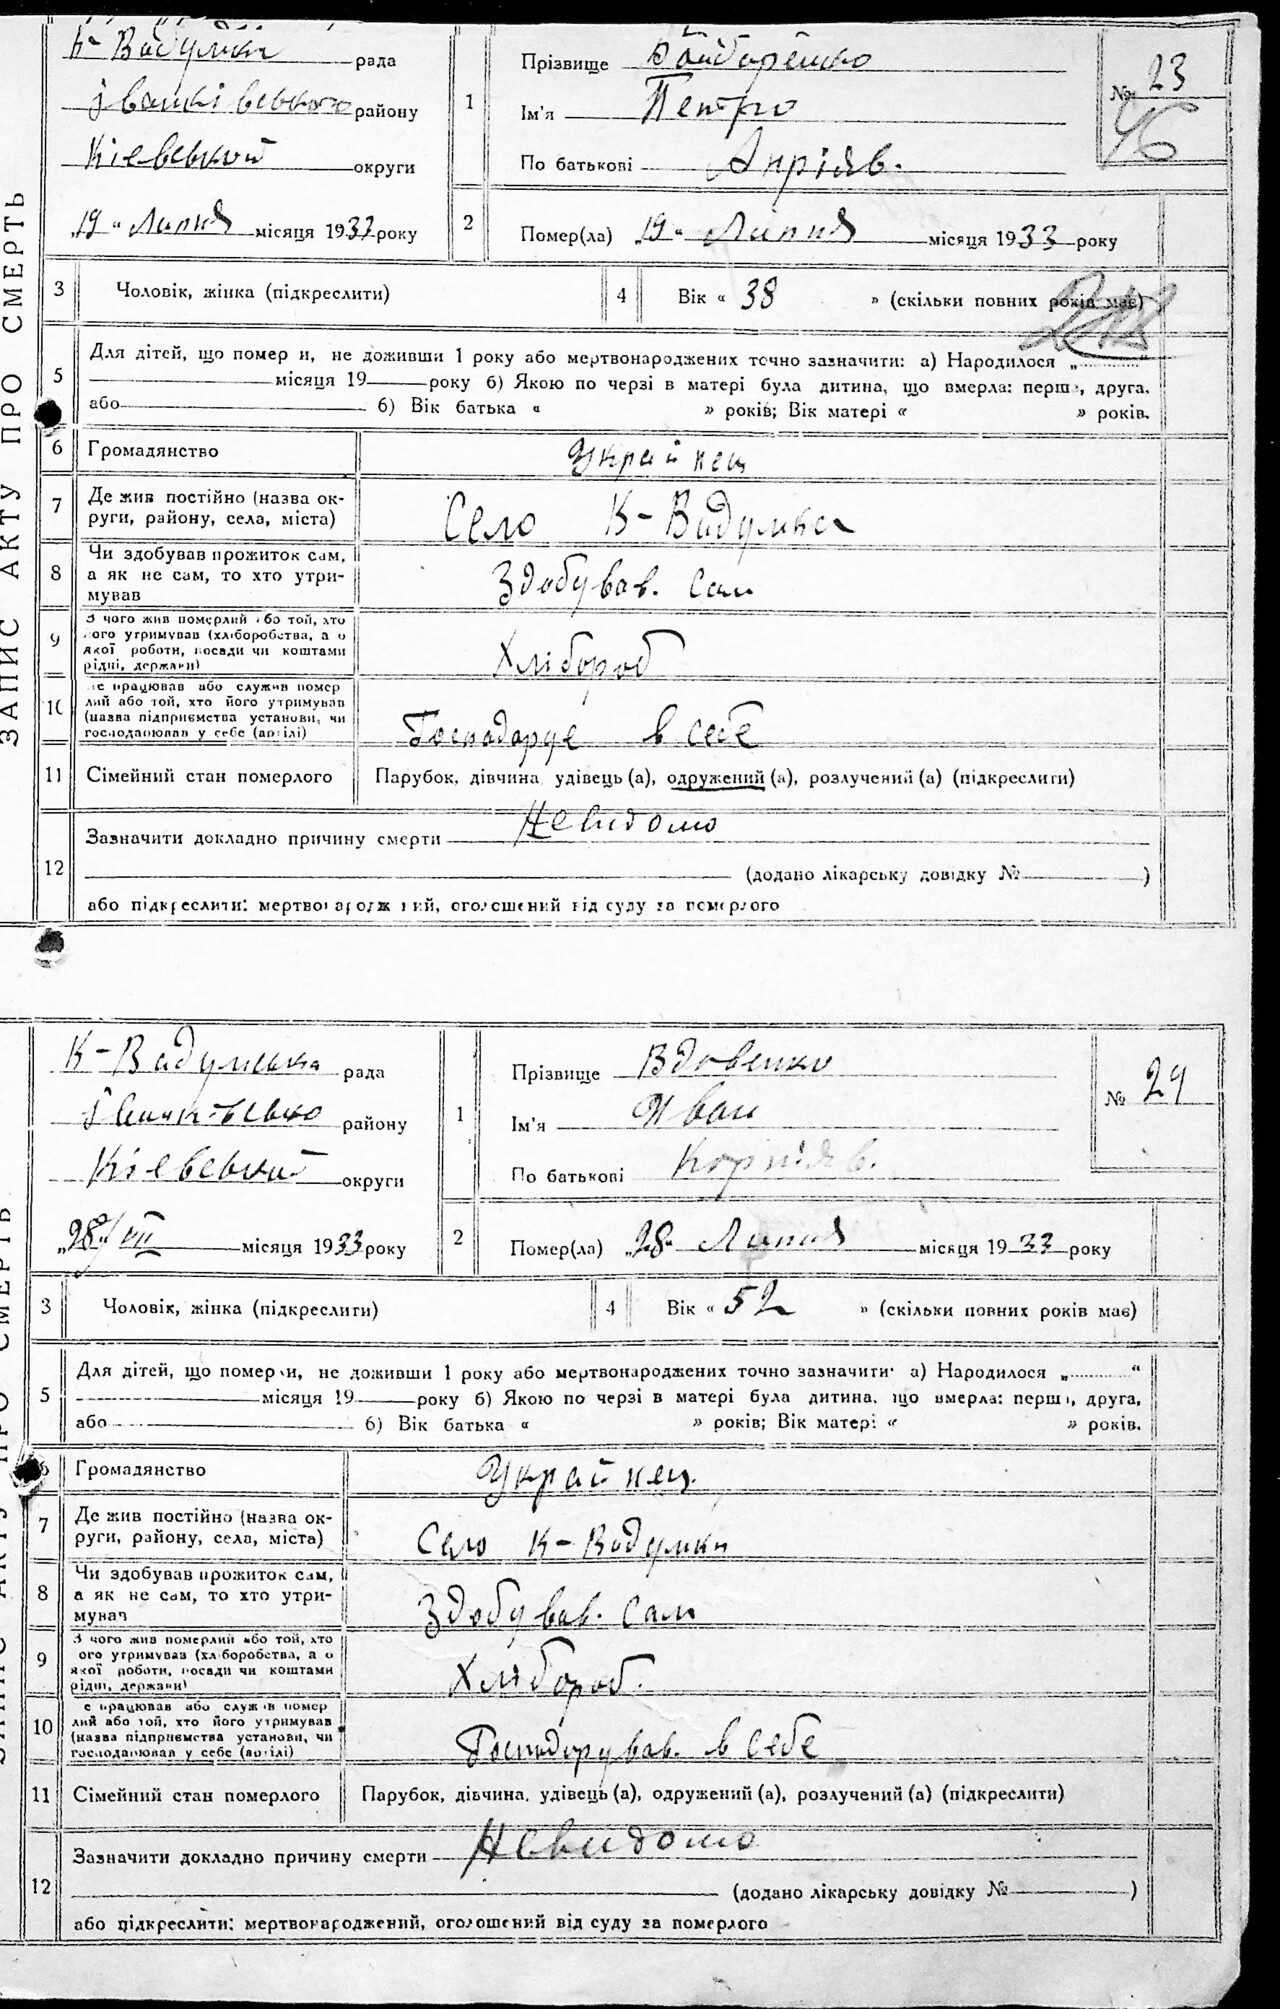 ЗАПИС АКТУ ПРО СМЕРТЬ
К-Вадумка рада
Іванківського району
Кіевський округи
„19“ Липня місяця 1933 року
1
Прізвище
Ім'я Петро
По батькові
№ 23
46
2
Помер(ла) „19“ Липня місяця 1933 року
3 Чоловік, жінка (підкреслити)
4 Вік « 38 » (скільки повних років має)
5
Для дітей, що помер и, не доживши 1 року або мертвонароджених точно зазначити: а) Народилося „
місяця 19 року б) Якою по черзі в матері була дитина, що вмерла: перша, друга,
або б) Вік батька « » років; Вік матері « » років.
6 Громадянство Украйнец
7 Де жив постійно (назва ок-
руги, району, села, міста) Село К-Вадумка
8 Чи здобував прожиток сам,
а як не сам, то хто утри-
мував Здобував. Сам
9 З чого жив померлий або той, хто
ого утримував (хліборобства, а о
якої роботи, посади чи коштами
рідні, держави) Хлібороб
10 е працював або служив помер
лий або той, хто його утримував
(назва підприємства установи, чи
господарював у себе (артілі) Господарує в себе
11 Сімейний стан померлого Парубок, дівчина, удівець (а), одружений (а), розлучений (а) (підкреслити)
12
Зазначити докладно причину смерти Невидомо
(додано лікарську довідку № )
або підкреслити: мертвонароджений, оголошений від суду за померлого
ЗАПИС АКТУ ПРО СМЕРТЬ
К-Вадумська рада
району
Кіевський округи
„28“/VII місяця 1933 року
1
Прізвище Вдовенко
Ім'я Иван
По батькові Корніяв.
№ 24
2
Помер(ла) „28“ Липня місяця 1933 року
3 Чоловік, жінка (підкреслити)
4 Вік « 52 » (скільки повних років має)
5
Для дітей, що померли, не доживши 1 року або мертвонароджених точно зазначити: а) Народилося „ “
місяця 19 року б) Якою по черзі в матері була дитина, що вмерла: перша, друга,
або б) Вік батька « » років; Вік матері « » років.
6 Громадянство Украйнец.
7 Де жив постійно (назва ок-
руги, району, села, міста) Село К-Вадумка
8 Чи здобував прожиток сам,
а як не сам, то хто утри-
мував Здобував. Сам
9 З чого жив померлий або той, хто
ого утримував (хліборобства, а о
якої роботи, посади чи коштами
рідні, держави) Хлібороб.
10 е працював або служив помер
лий або той, хто його утримував
(назва підприємства установи, чи
господарював у себе (артілі) Господарував. в себе
11 Сімейний стан померлого Парубок, дівчина, удівець (а), одружений (а), розлучений (а) (підкреслити)
12
Зазначити докладно причину смерти Невидомо
(додано лікарську довідку № )
або підкреслити: мертвонароджений, оголошений від суду за померлого